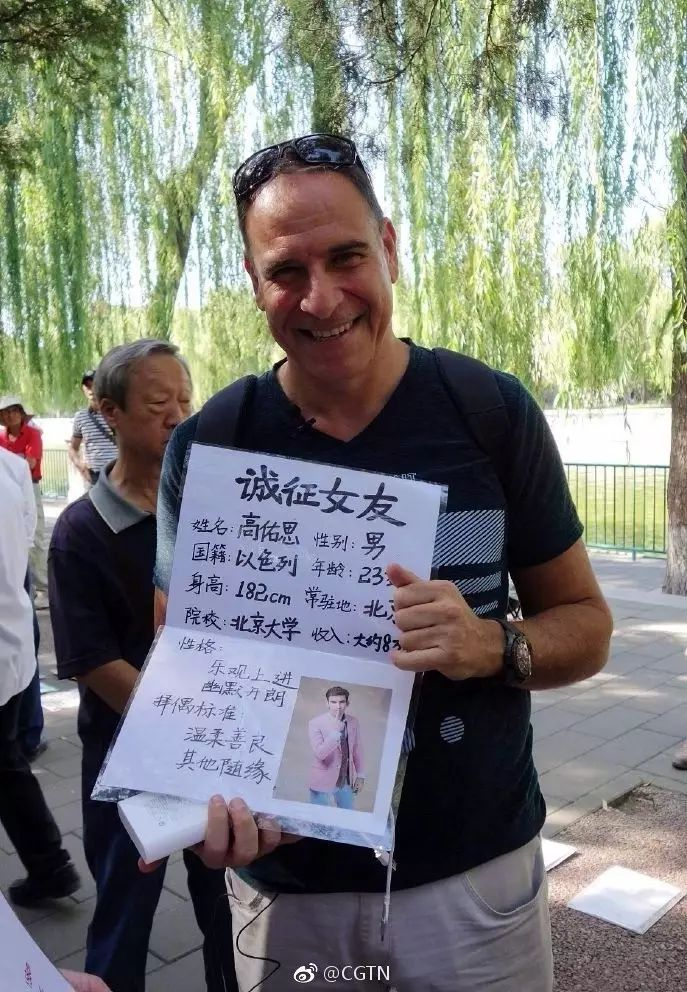 诚征女友
姓名：高佑思 性别：男
国籍：以色列 年龄：23
身高：182cm 常驻地：北
院校：北京大学 收入：大约8
性格：
乐观上进
幽默开朗
择偶标准：
温柔善良
其他随缘
@CGTN